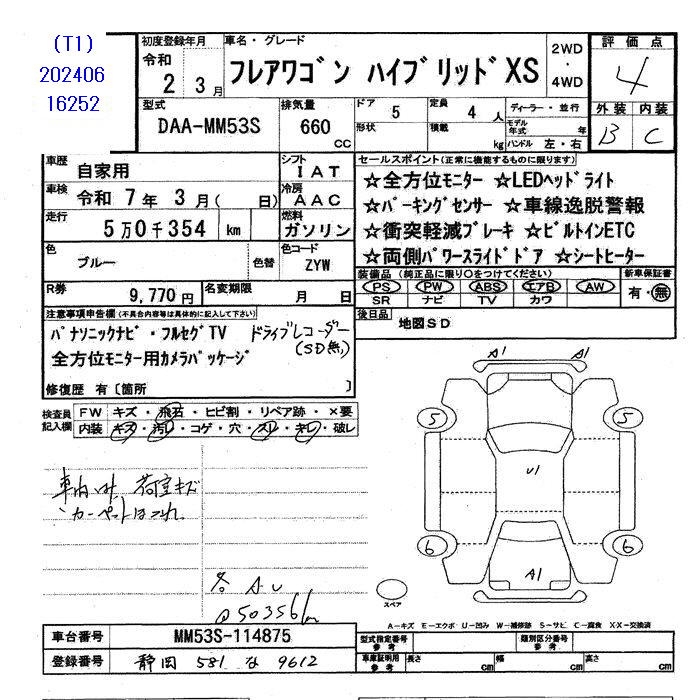 (T1)
202406
16252
初度登録年月
令和
2 3月
車名・グレード
フレアワゴン ハイブリッド XS
2WD
・
4WD
評価点
4
外装 内装
B C
型式
DAA-MM53S
排気量
660 cc
ドア 5
形状
定員 4 人
積載 kg
ディーラー・並行
モデル年式 年
ハンドル 左・右
車歴
自家用
シフト
IAT
車検
令和 7年 3月( 日)
冷房
AAC
走行
5万0千354 km
燃料
ガソリン
色
ブルー
色替
色コード
ZYW
R券
9,770円
名変期限
月 日
セールスポイント(正常に機能するものに限ります)
☆全方位モニター ☆LEDヘッドライト
☆パーキングセンサー ☆車線逸脱警報
☆衝突軽減ブレーキ ☆ビルトインETC
☆両側パワースライドドア ☆シートヒーター
装備品(純正品に限り○をつけてください)
PS PW ABS エアB AW
SR ナビ TV カワ
新車保証書
有・無
後日品
地図SD
注意事項申告欄(不具合内容等は具体的に記入して下さい)
パナソニックナビ・フルセグTV ドライブレコーダー
(SD無)
全方位モニター用カメラパッケージ
修復歴 有〔箇所 〕
検査員記入欄
FW キズ・飛石・ヒビ割・リペア跡・×要
内装 キズ・汚レ・コゲ・穴・スレ・キレ・破レ
荷室キズ
A1 A1
5 5
U1
6 6
A1
スペア
A-キズ E-エクボ U-凹み W-補修跡 S-サビ C-腐食 X・XX-交換済
@50356km
車台番号
MM53S-114875
登録番号
静岡 581 な 9612
型式指定番号
参考
類別区分番号
参考
車庫証明用
参考
長さ cm 幅 cm 高さ cm